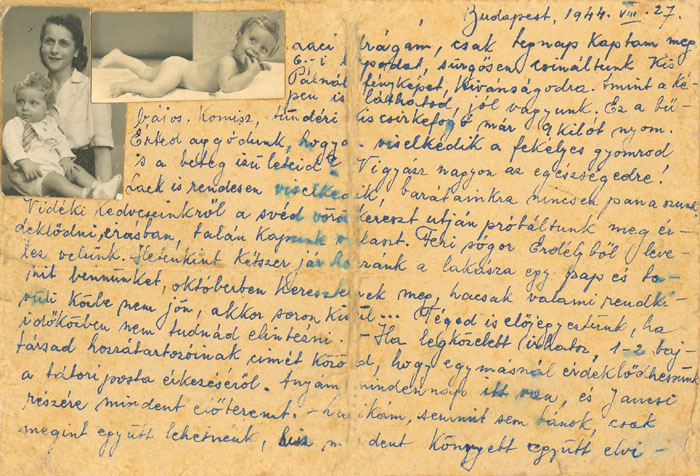 Budapest, 1944. VIII. 27.
Laci drágám, csak tegnap kaptam meg
lapodat, sürgősen csináltunk Kis
Palinál fényképet, kivánságodra. Amint a ké-
pen is láthatod, jól vagyunk. Ez a bű-
bájos. Komisz, tündéri kis cirkefogó már 9 kilót nyom.
Érted aggódunk, hogyan viselkedik a fekélyes gyomrod
s a beteg izületeid? Vigyázz nagyon az egészségedre!
Lack is rendesen viselkedik, barátainkra nincsen panaszunk
Vidéki kedveseinkről a svéd vöröskereszt utján próbáltunk meg ér-
deklődni, írásban, talán kapunk választ. Feri sógor Erdélyből leve-
lez velünk. Hetenként kétszer jár hozzánk a lakásra egy pap és ta-
nit bennünket, októberben keresztelnek meg, hacsak valami rendkí-
vüli közbe nem jön, akkor soron kívül... Téged is előjegyeztünk, ha
időközben nem tudnád elintézni. - Ha legközelebb írhatsz, 1-2 baj-
társad hozzátartozóinak címét közöld, hogy egymásnál érdeklődhessünk
a tábori posta érkezéséről. Anyám mindennap itt van, és Jancsi
részére mindent előteremt. - semmit sem bánok, csak
megint együtt lehetnénk, hisz mindent könnyebb együtt elvi-